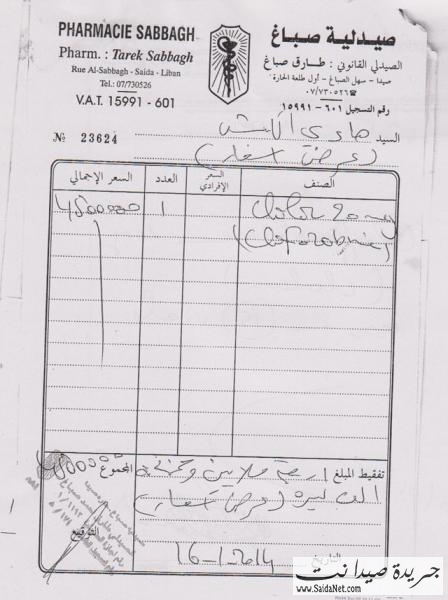 PHARMACIE SABBAGH
Pharm. : Tarek Sabbagh
Rue Al-Sabbagh - Saida - Liban
Tel.: 07/730526
V.A.T. 15991 - 601
صيدلية صباغ
الصيدلي القانوني : طارق صباغ
صيدا - سهل الصباغ - أول طلعة الحارة
☎ ٠٧/٧٣٠٥٢٦
رقم التسجيل ٦٠١ - ١٥٩٩١
№ 23624
السيد
(عرض أسعار)
الصنف
السعر الإفرادي
العدد
السعر الإجمالي
20 mg
1
4500000
المجموع
4500000
تفقيط المبلغ أربعة ملايين وخمسماية
الف ليرة (عرض أسعار)
التوقيع
التاريخ
16-1-2014
جريدة صيدا نت
www.SaidaNet.com